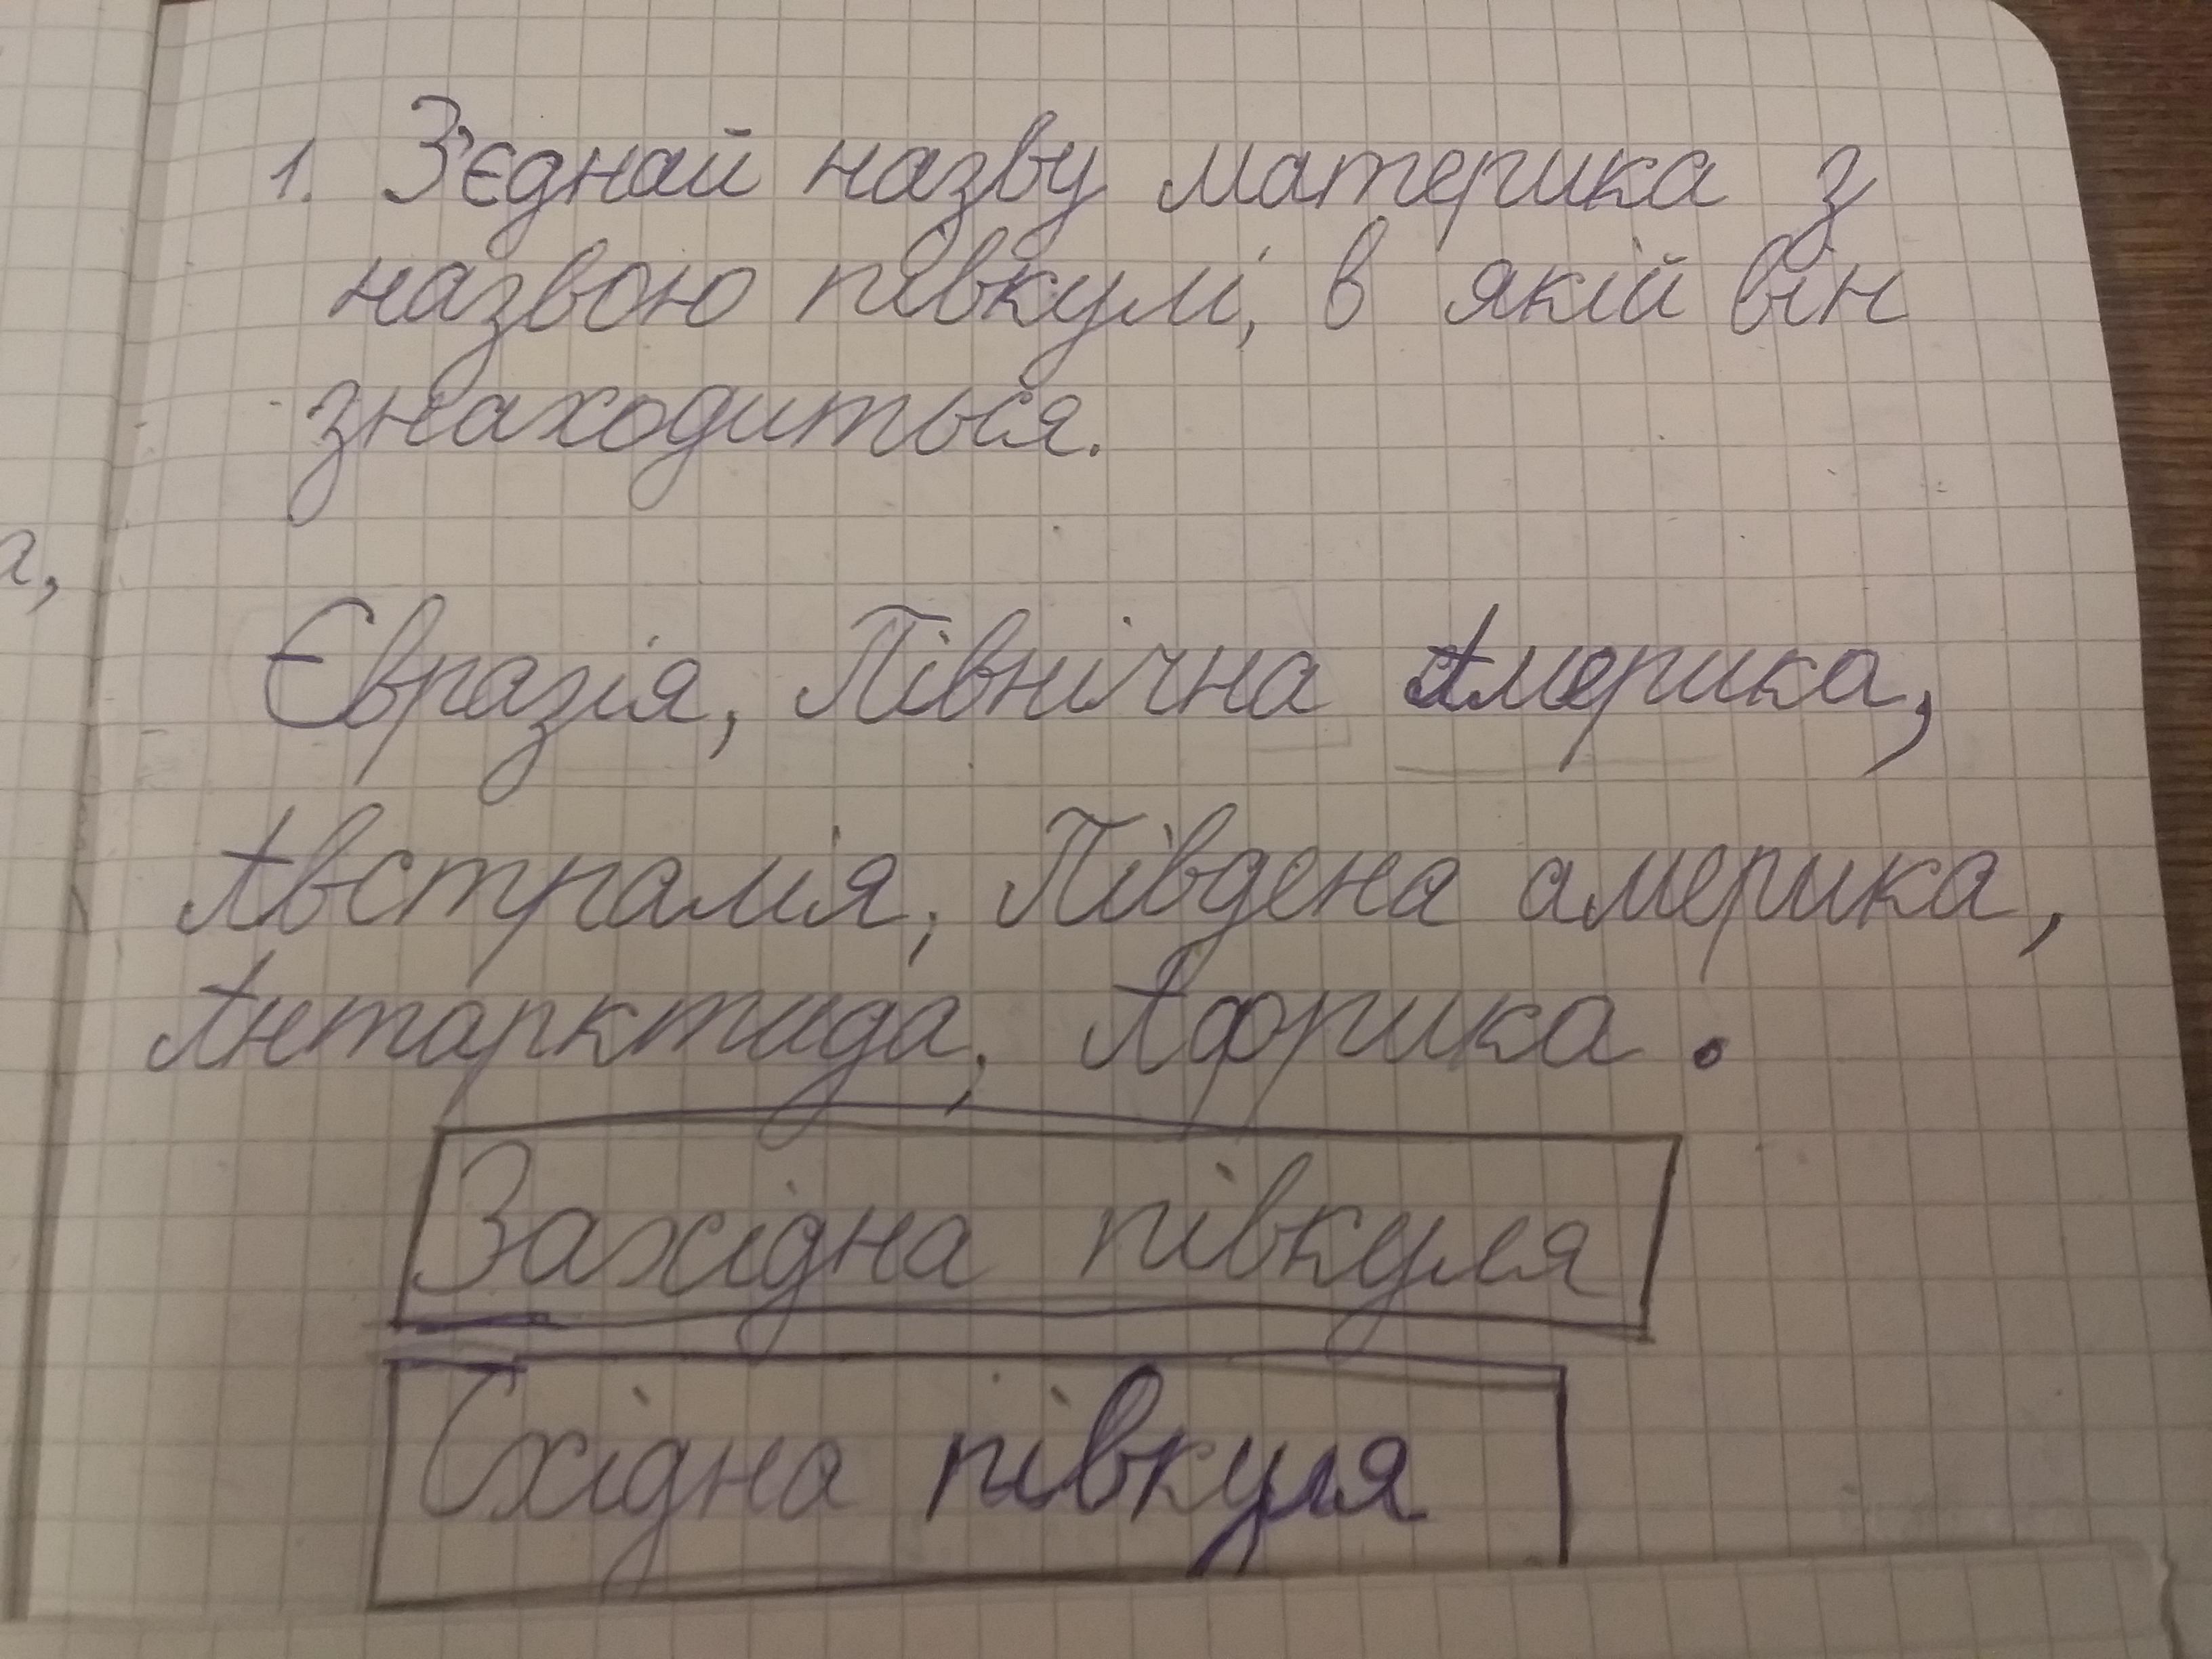 1. З'єднай назву материка з
назвою півкулі, в якій він
знаходиться.
а,
Євразія, Північна Америка,
Австралія, Південа америка,
Антарктида, Африка.
Західна півкуля
Східна півкуля